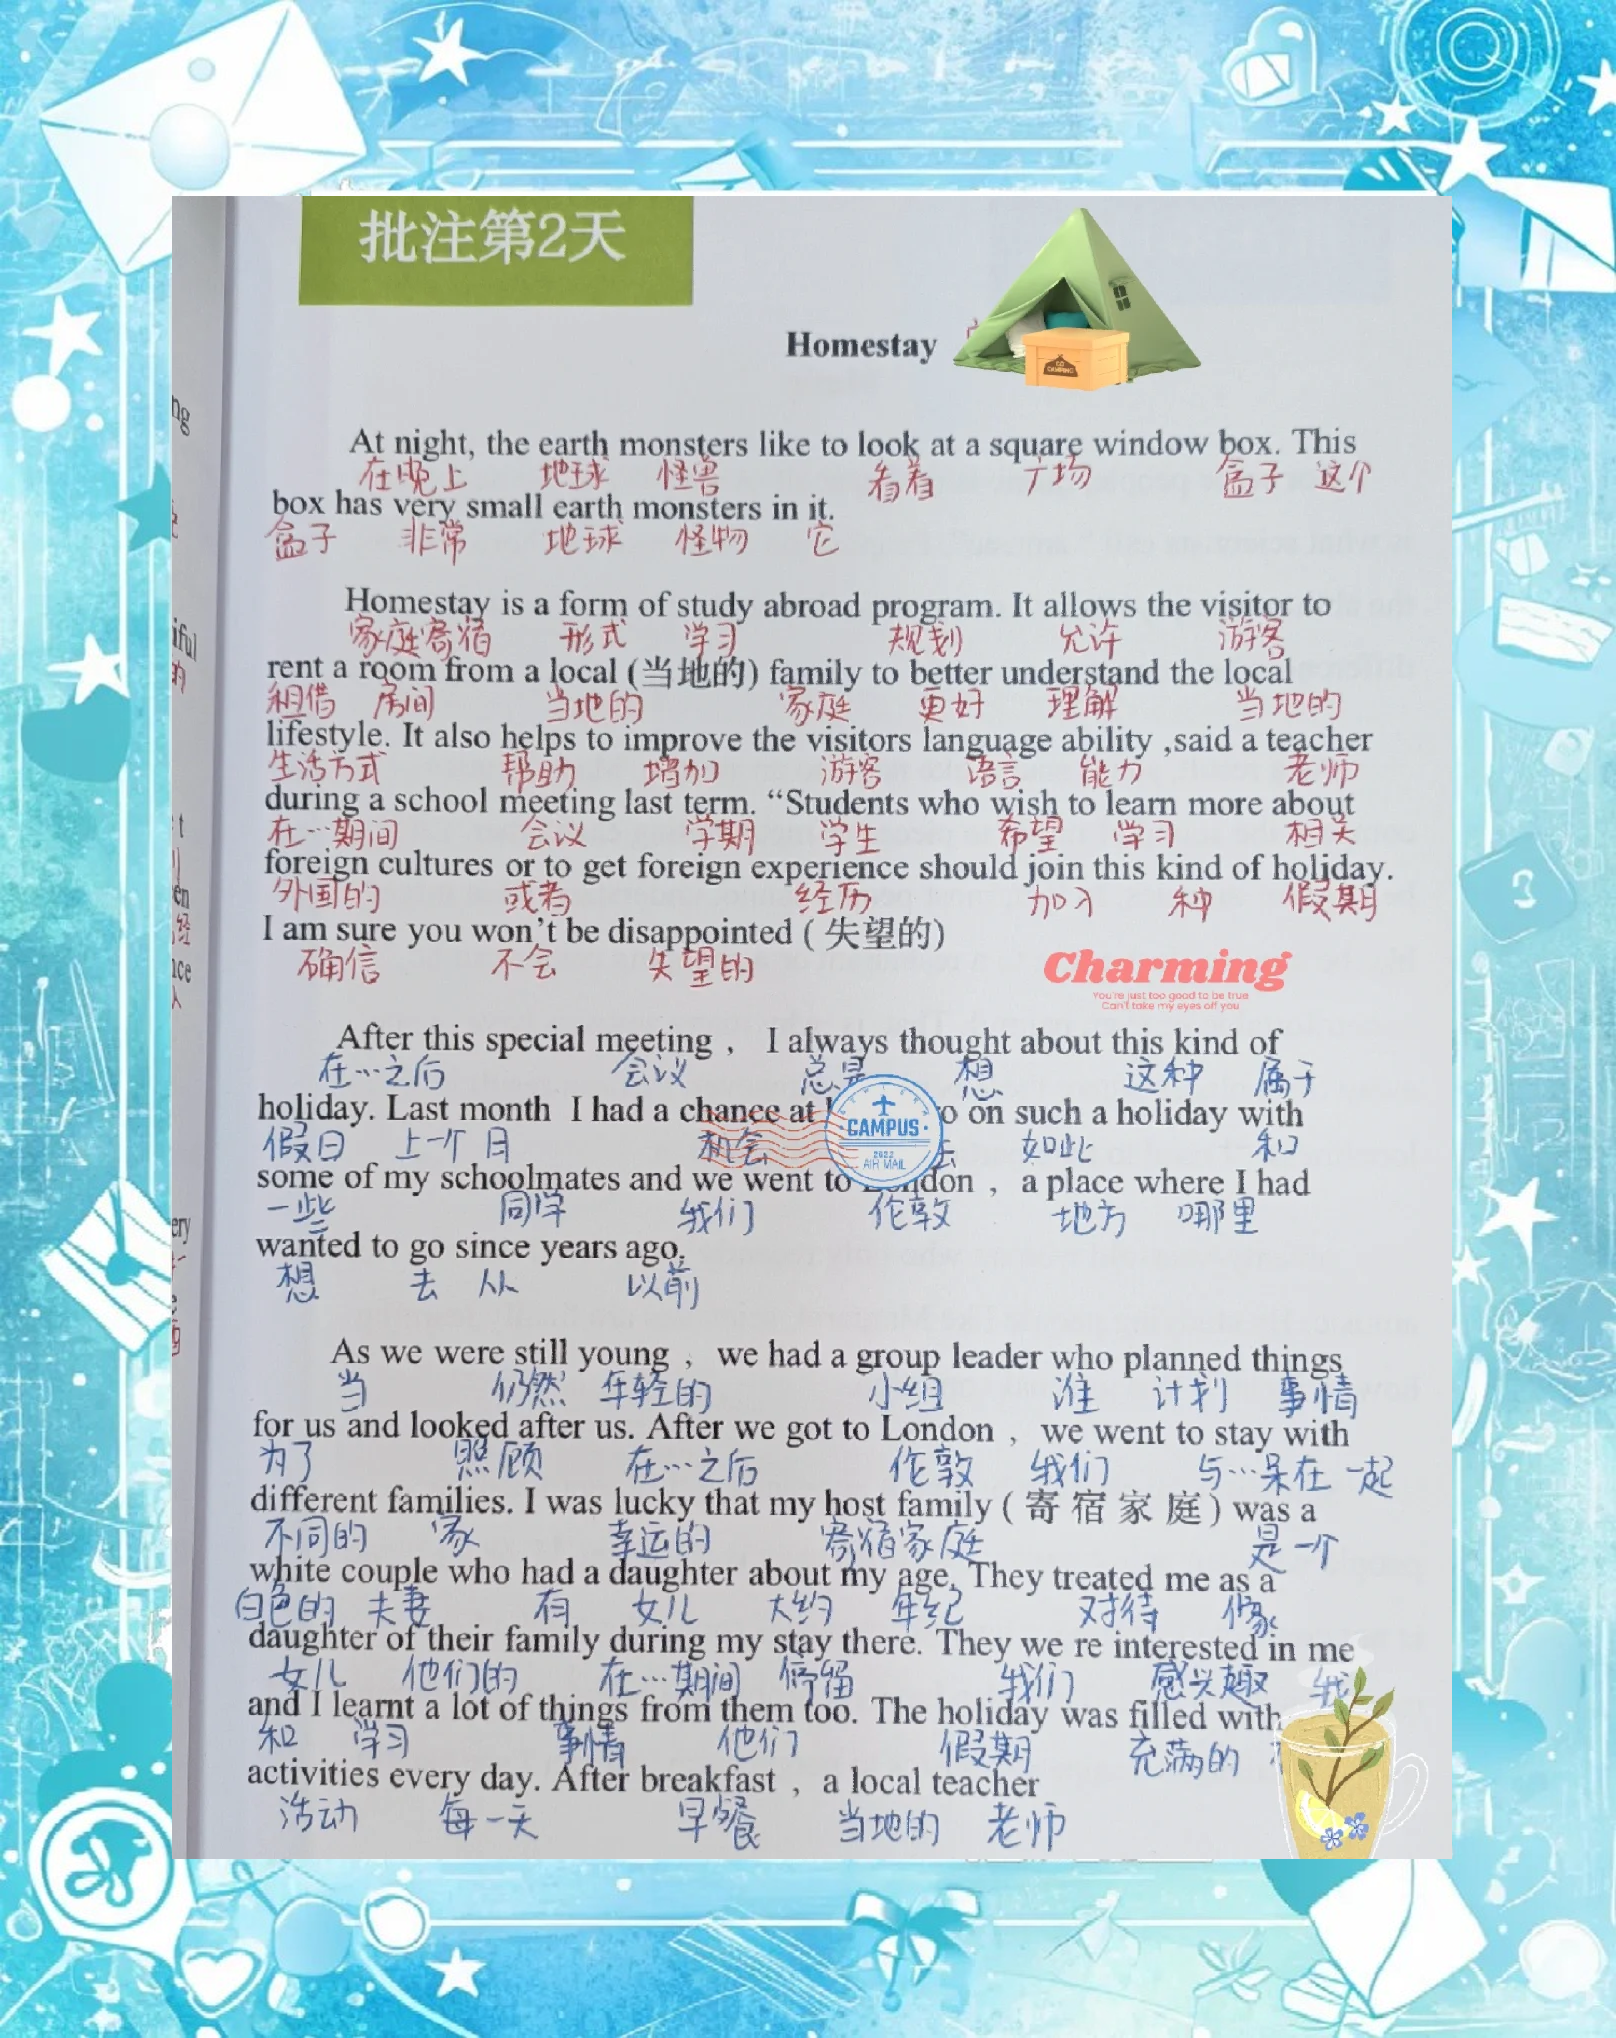 批注第2天
Homestay
At night, the earth monsters like to look at a square window box. This
在晚上 地球 怪兽 看着 广场 盒子 这个
box has very small earth monsters in it.
盒子 非常 地球 怪物 它
Homestay is a form of study abroad program. It allows the visitor to
家庭寄宿 形式 学习 规划 允许 游客
rent a room from a local (当地的) family to better understand the local
租借 房间 当地的 家庭 更好 理解 当地的
lifestyle. It also helps to improve the visitors language ability ,said a teacher
生活方式 帮助 增加 游客 语言 能力 老师
during a school meeting last term. “Students who wish to learn more about
在…期间 会议 学期 学生 希望 学习 相关
foreign cultures or to get foreign experience should join this kind of holiday.
外国的 或者 经历 加入 种 假期
I am sure you won’t be disappointed ( 失望的)
确信 不会 失望的
Charming
You're just too good to be true
Can't take my eyes off you
After this special meeting , I always thought about this kind of
在…之后 会议 总是 想 这种 属于
holiday. Last month I had a chance at on such a holiday with
假日 上一个月 机会 去 如此 和
CAMPUS
2022
AIR MAIL
some of my schoolmates and we went to London , a place where I had
一些 同学 我们 伦敦 地方 哪里
wanted to go since years ago.
想 去 从 以前
As we were still young , we had a group leader who planned things
当 仍然 年轻的 小组 谁 计划 事情
for us and looked after us. After we got to London , we went to stay with
为了 照顾 在…之后 伦敦 我们 与…呆在一起
different families. I was lucky that my host family ( 寄宿家庭) was a
不同的 家 幸运的 寄宿家庭 是一个
white couple who had a daughter about my age. They treated me as a
白色的 夫妻 有 女儿 大约 年纪 对待 像
daughter of their family during my stay there. They we re interested in me
女儿 他们的 在…期间 停留 我们 感兴趣 我
and I learnt a lot of things from them too. The holiday was filled with
和 学习 事情 他们 假期 充满的
activities every day. After breakfast , a local teacher
活动 每一天 早餐 当地的 老师